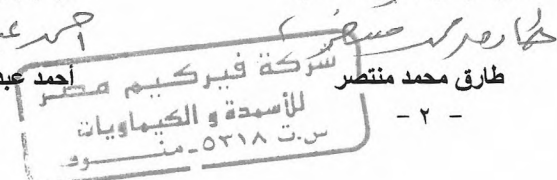 طارق محمد منتصر
أحمد عبد
شركة فيركيم مصر
للأسمدة و الكيماويات
س.ت ٥٣١٨ - منـــود
- ٢ -